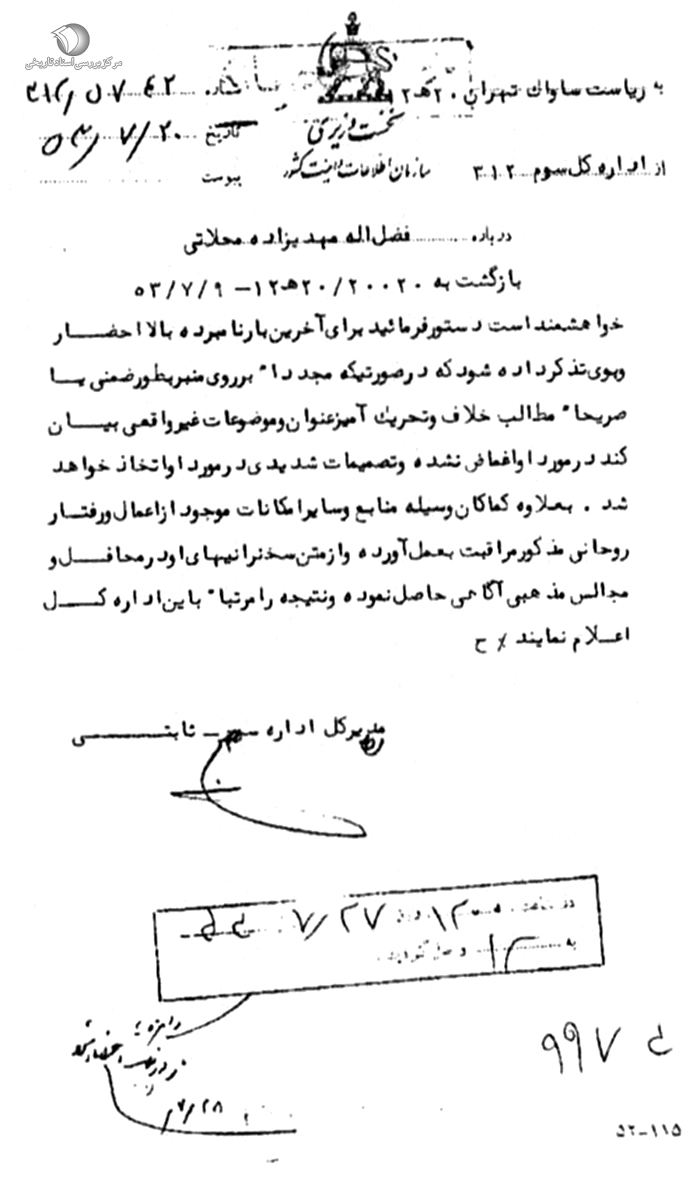 مرکز بررسی اسناد تاریخی
به ریاست ساواك تهران ۲۰هـ۱۲
شماره ۳۱۲/۵۷۴۲
نخست وزیری
تاریخ ۵۳/۷/۲۰
از اداره کل سوم ۳۱۲
سازمان اطلاعات و امنیت کشور
پیوست
درباره فضل‌اله مهدیزاده محلاتی
بازگشت به ۲۰۰۲۰/۲۰هـ۱۲-۵۳/۷/۹
خواهشمند است دستور فرمائید برای آخرین بار نامبرده بالا احضار
وبوی تذکر داده شود که در صورتیکه مجددا" بر روی منبر بطور ضمنی یا
صریحا" مطالب خلاف وتحریك آمیز عنوان وموضوعات غیر واقعی بیان
کند در مورد او اغماض نشده وتصمیمات شدیدی در مورد او اتخاذ خواهد
شد . بعلاوه کماکان وسیله منابع وسایر امکانات موجود از اعمال ورفتار
روحانی مذکور مراقبت بعمل آورده واز متن سخنرانیهای او در محافل و
مجالس مذهبی آگاهی حاصل نموده ونتیجه را مرتبا" باین اداره کل
اعلام نمایند ٪ ح
مدیرکل اداره سوم - ثابتی
در ساعت ۱۳ روز ۷/۲۷
به ۱۲ واصل گردید.
احضار شد
۷/۲۸
۹۹۷
۵۲-۱۱۵